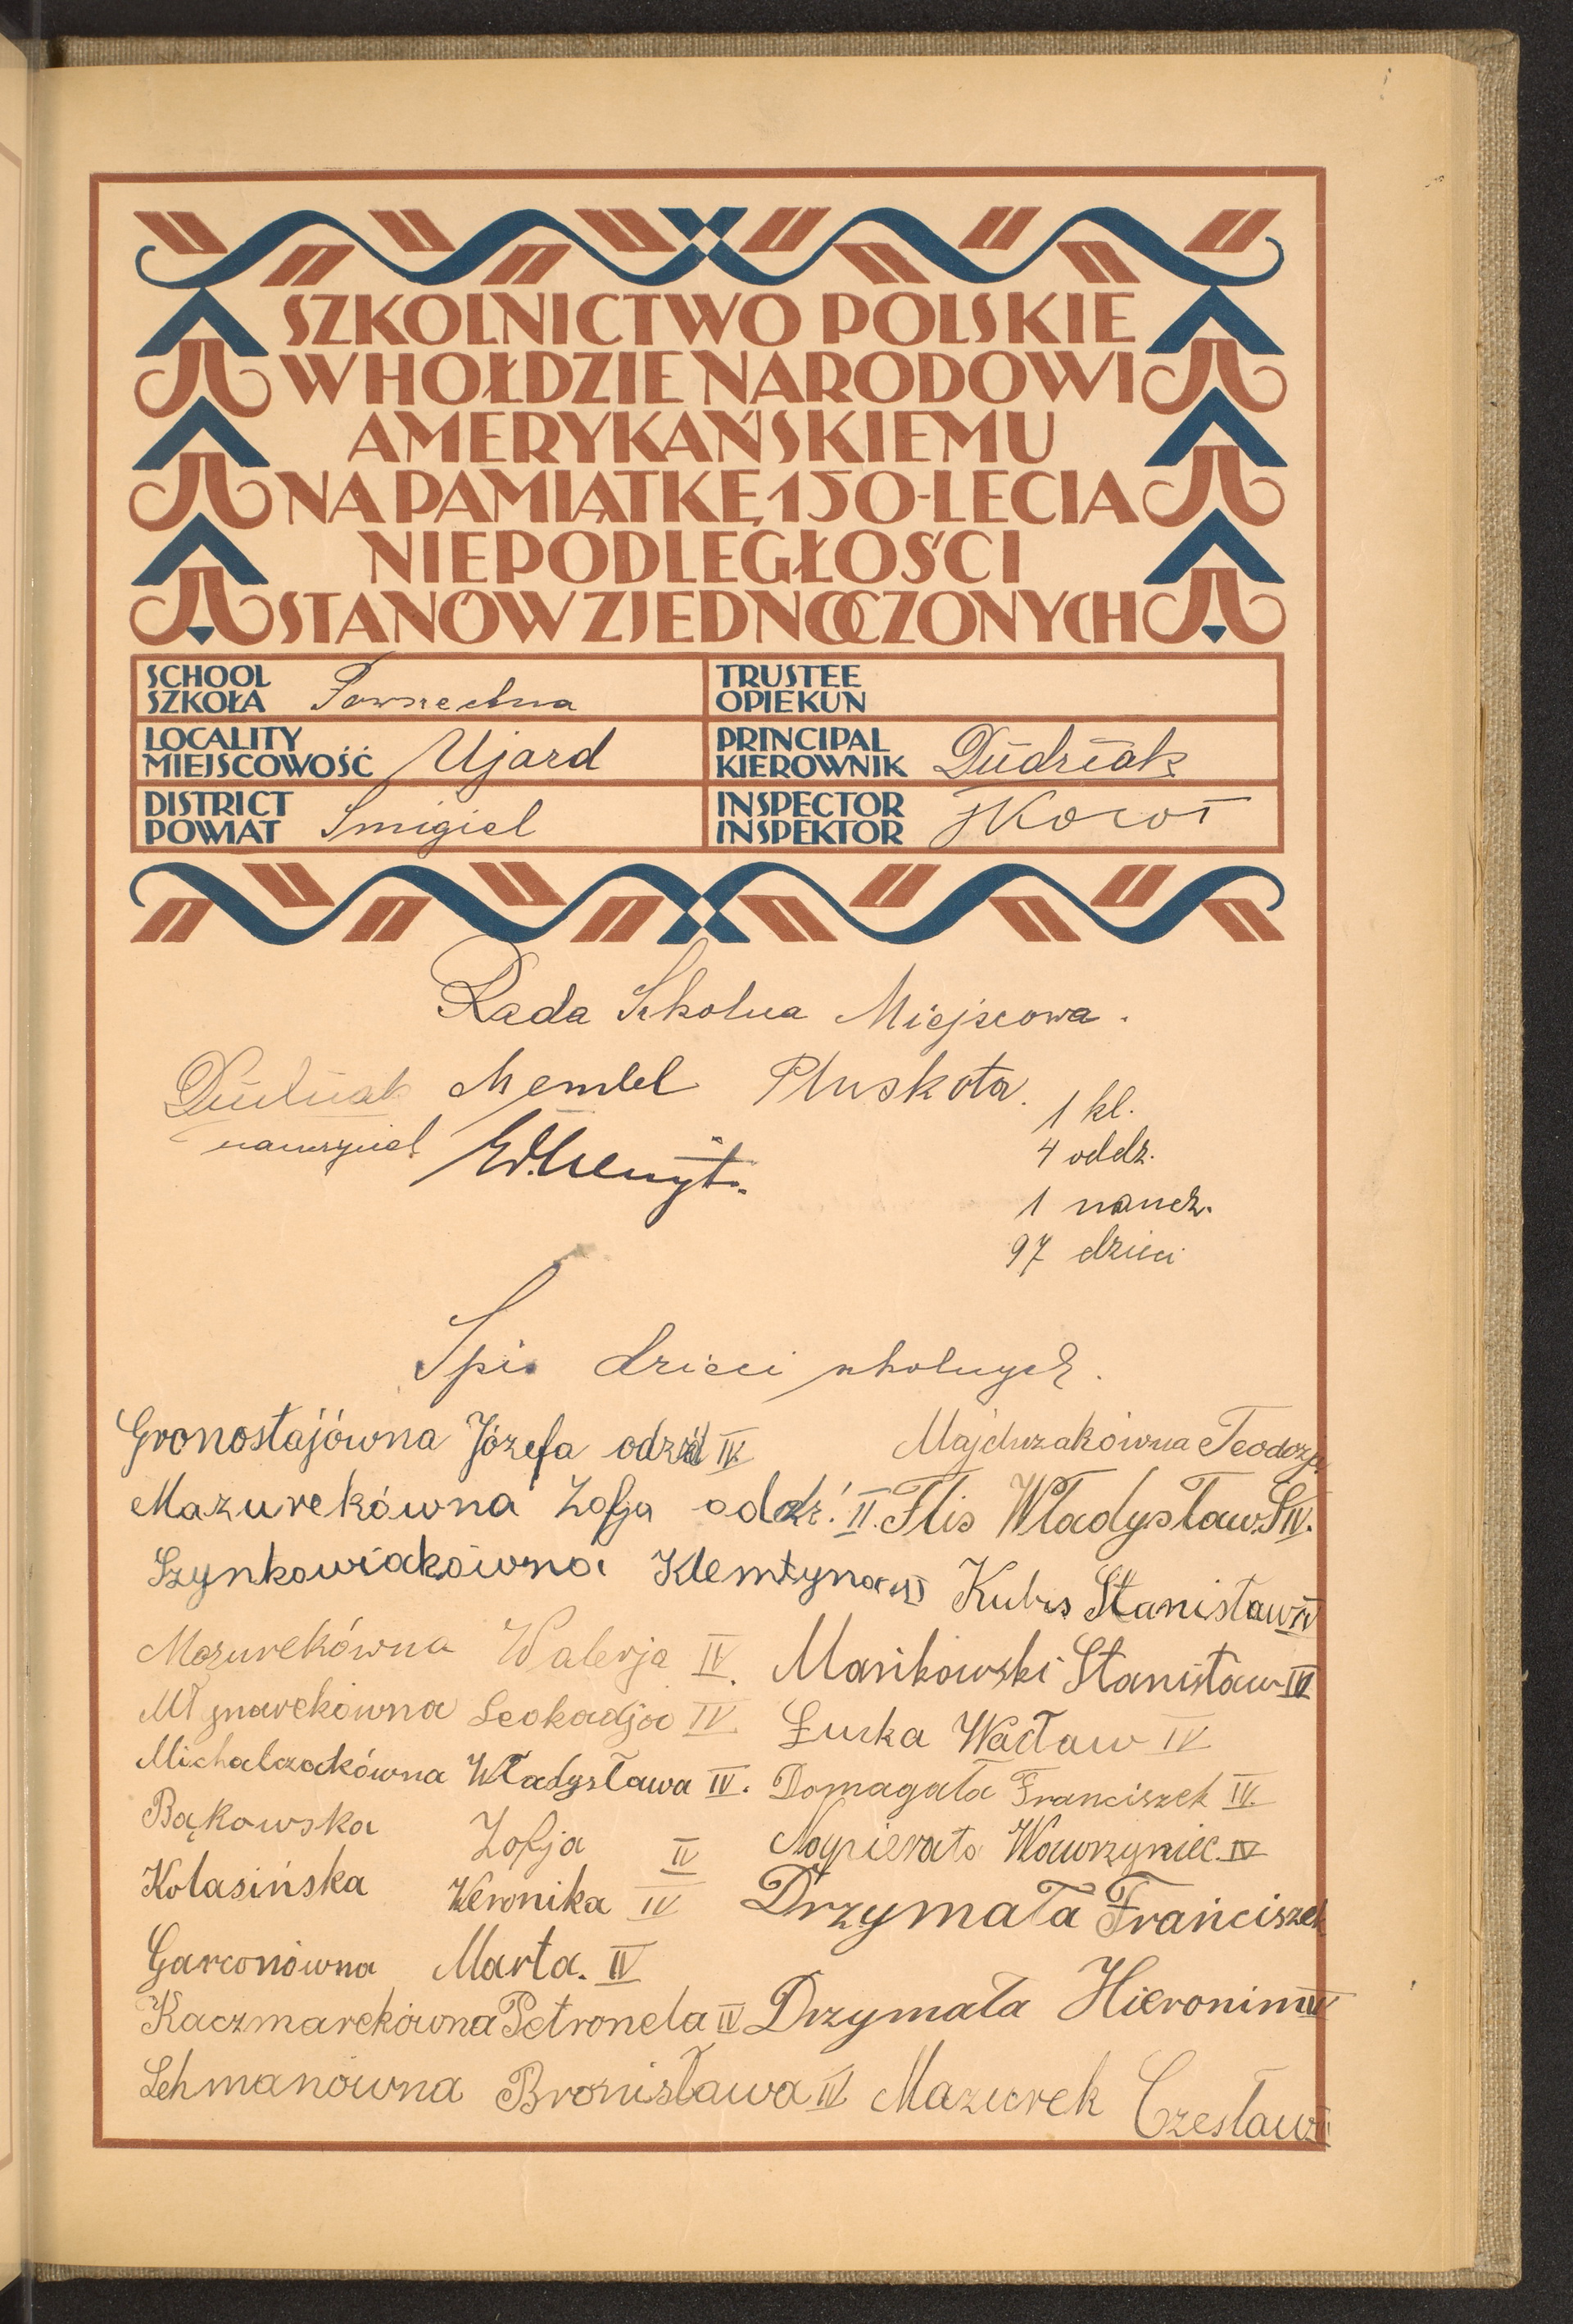 SZKOLNICTWO POLSKIE
W HOŁDZIE NARODOWI
AMERYKAŃSKIEMU
NA PAMIĄTKĘ 150-LECIA
NIEPODLEGŁOŚCI
STANÓW ZJEDNOCZONYCH
SCHOOL
SZKOŁA Powszechna
TRUSTEE
OPIEKUN
LOCALITY
MIEJSCOWOŚĆ Ujazd
PRINCIPAL
KIEROWNIK Dudziak
DISTRICT
POWIAT Śmigiel
INSPECTOR
INSPEKTOR
Rada Szkolna Miejscowa.
Dudziak Mendel Pluskota.
nauczyciel
1 kl.
4 oddz.
1 naucz.
97 dzieci
Spis dzieci szkolnych.
Gronostajówna Józefa IV
Majchrzakówna Teodozja
Mazurekówna Zofja oddz. II.
Flis Władysław IV.
Szynkowiakówna Klemtyna
Kubis Stanisław IV
Mazurekówna Walerja IV.
Marikowski Stanisław IV
Młynarekówna Leokadja IV.
Łurka Wacław IV
Michalczakówna Władysława IV.
Domagała Franciszek IV.
Bąkowska Zofja IV
Napierała Wawrzyniec IV
Kolasińska Weronika IV
Drzymała Franciszek
Garconówna Marta. IV
Kaczmarekówna Petronela IV
Drzymała Hieronim IV
Lehmanówna Bronisława IV
Mazurek Czesław